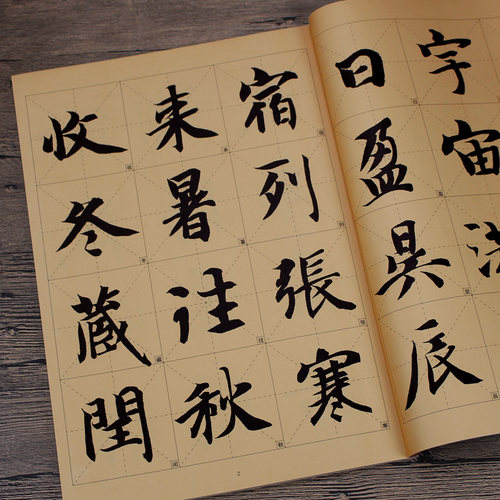 宇宙洪
日盈昃辰
宿列張寒
来暑往秋
收冬藏閏
2